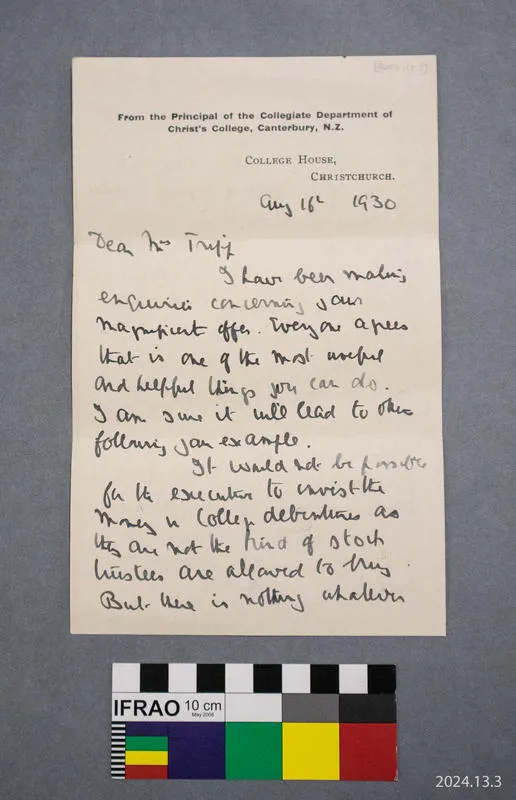 From the Principal of the Collegiate Department of
Christ's College, Canterbury, N.Z.
College House,
Christchurch.
Aug 16th 1930
Dear Mrs Tripp
I have been making
enquiries concerning your
magnificent offer. Everyone agrees
that it is one of the most useful
and helpful things you can do.
I am sure it will lead to others
following your example.
It would not be possible
for the executors to invest the
money in College debentures as
they are not the kind of stock
trustees are allowed to buy.
But there is nothing whatever
IFRAO 10 cm
May 2008
2024.13.3